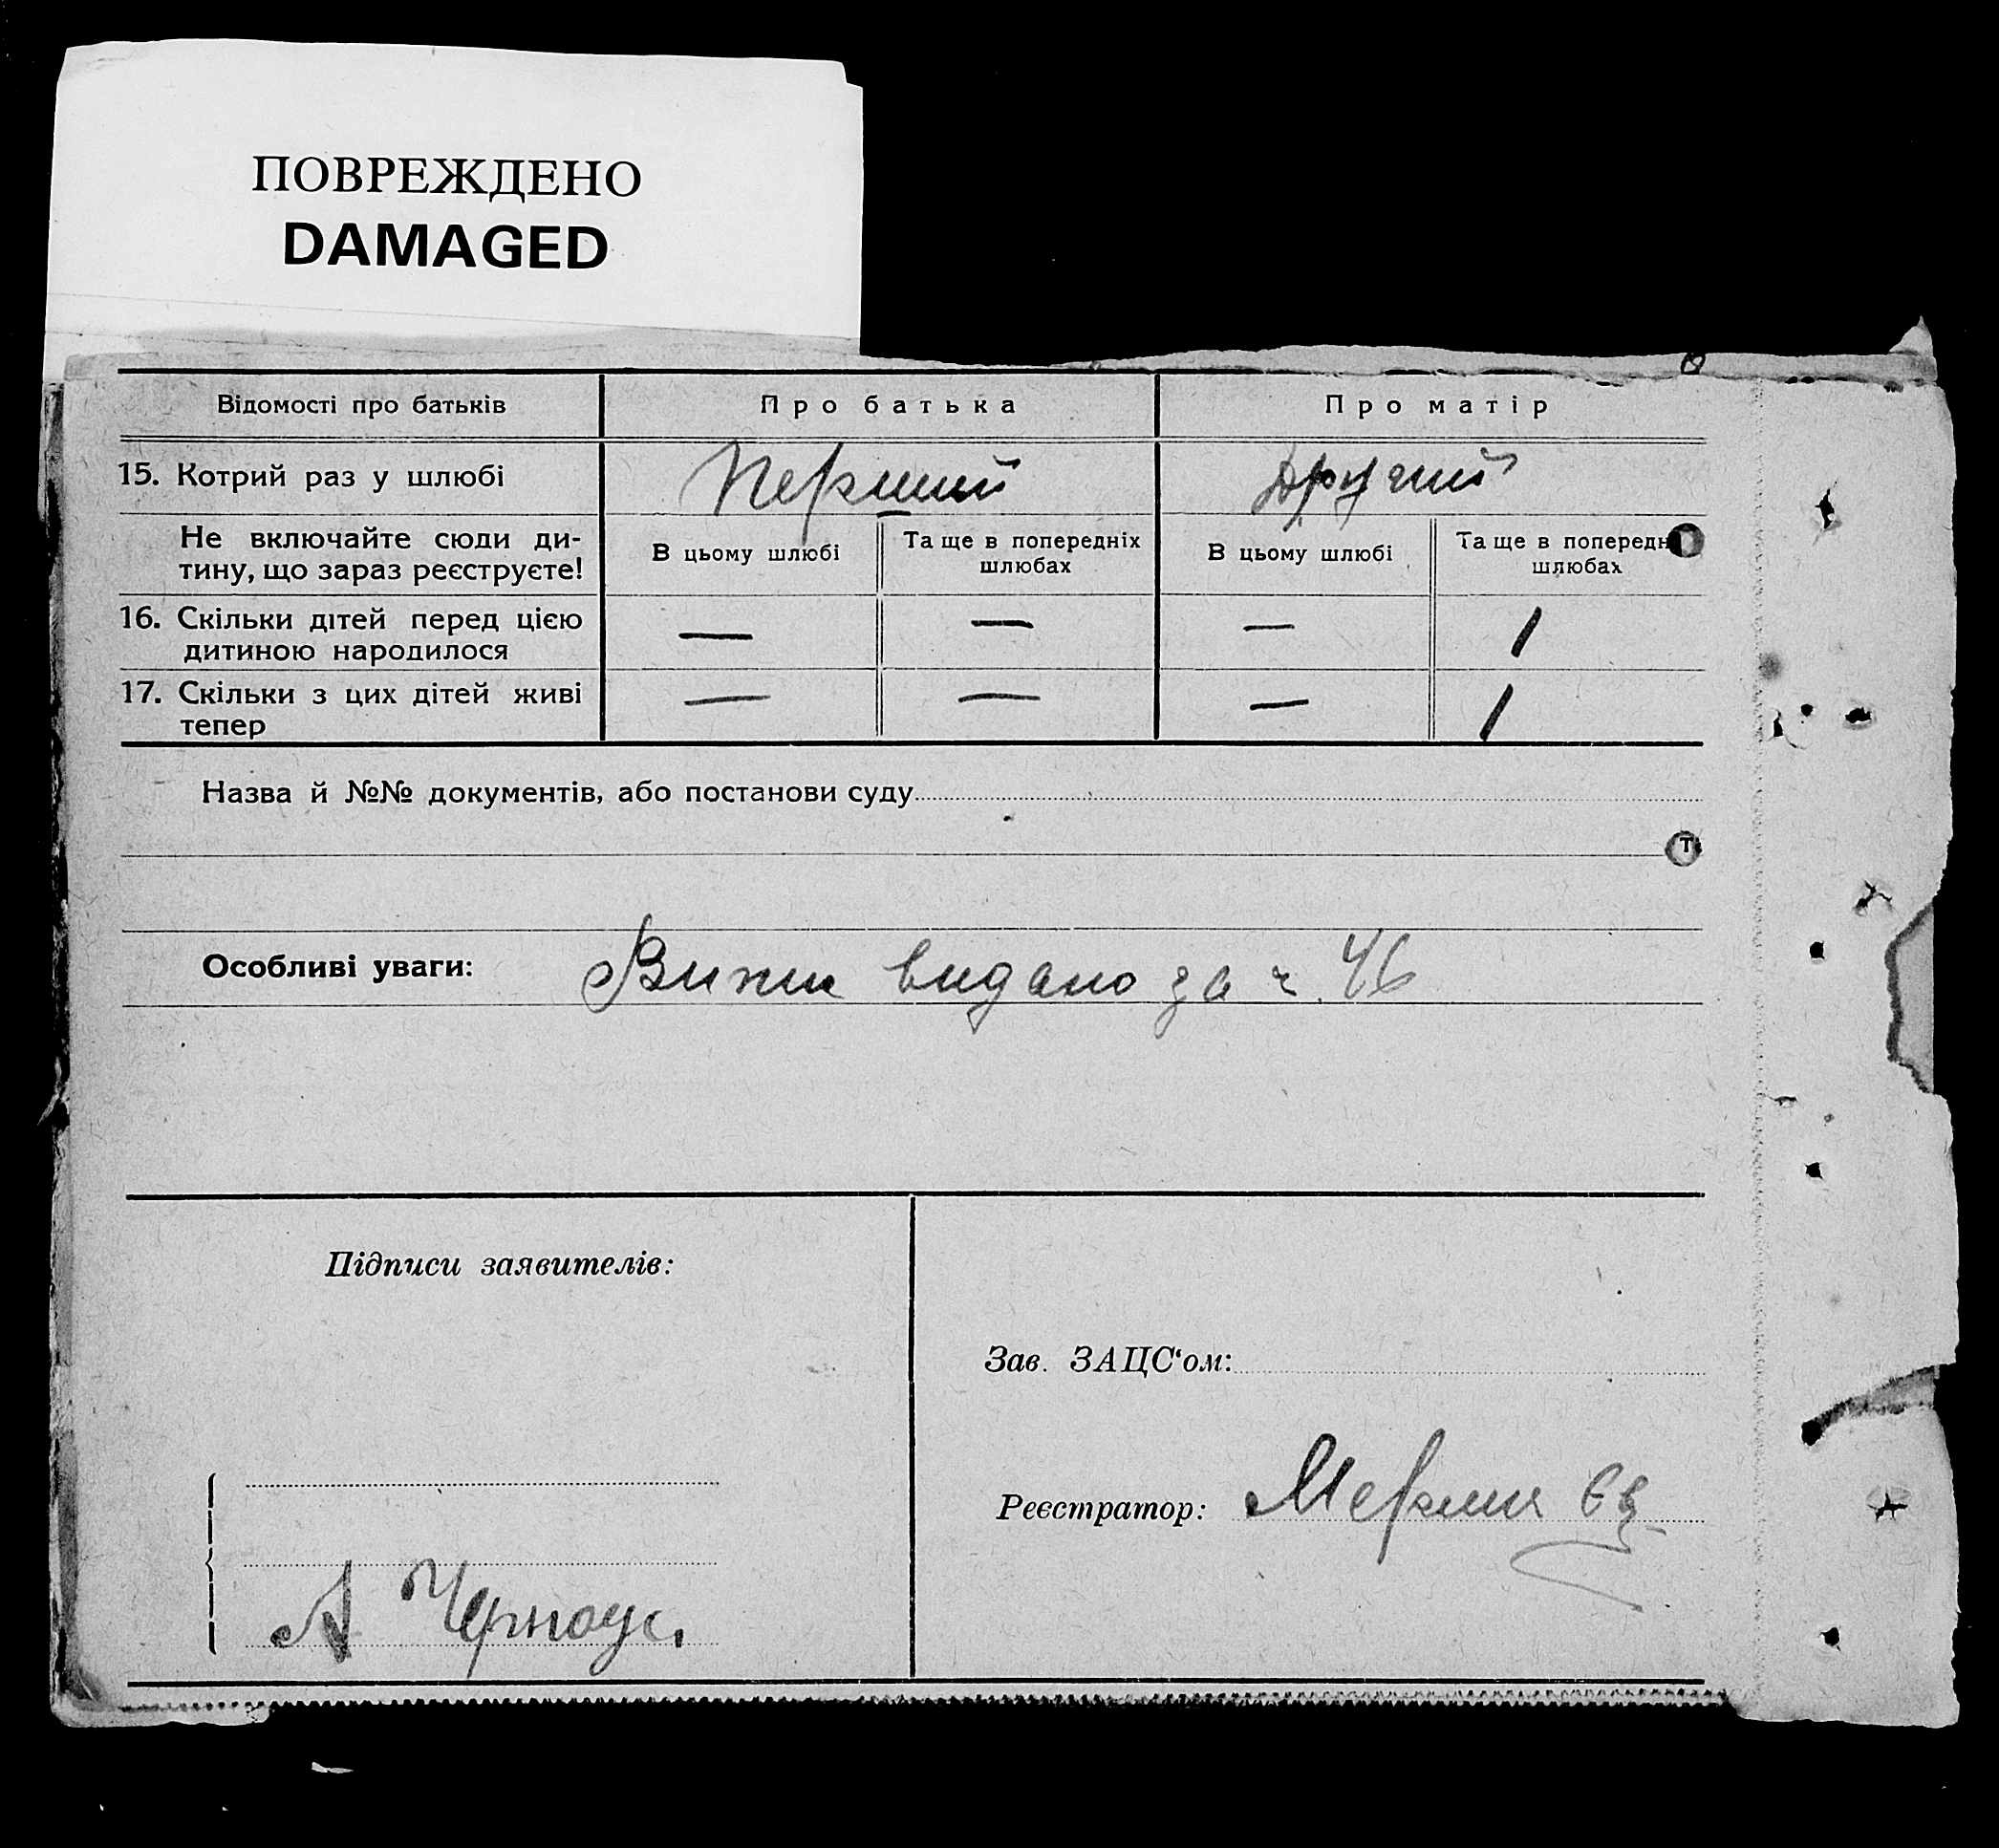 ПОВРЕЖДЕНО
DAMAGED
Відомості про батьків
Про батька
Про матір
15. Котрий раз у шлюбі
Перший
Другий
Не включайте сюди ди-
тину, що зараз реєструєте!
В цьому шлюбі
Та ще в попередніх
шлюбах
В цьому шлюбі
Та ще в попередн
шлюбах
16. Скільки дітей перед цією
дитиною народилося
— — — 1
17. Скільки з цих дітей живі
тепер
— — — 1
Назва й №№ документів, або постанови суду
Особливі уваги:
видано за ч. 46
Підписи заявителів:
Зав. ЗАЦС‘ом:
Реєстратор:
А Черноус.